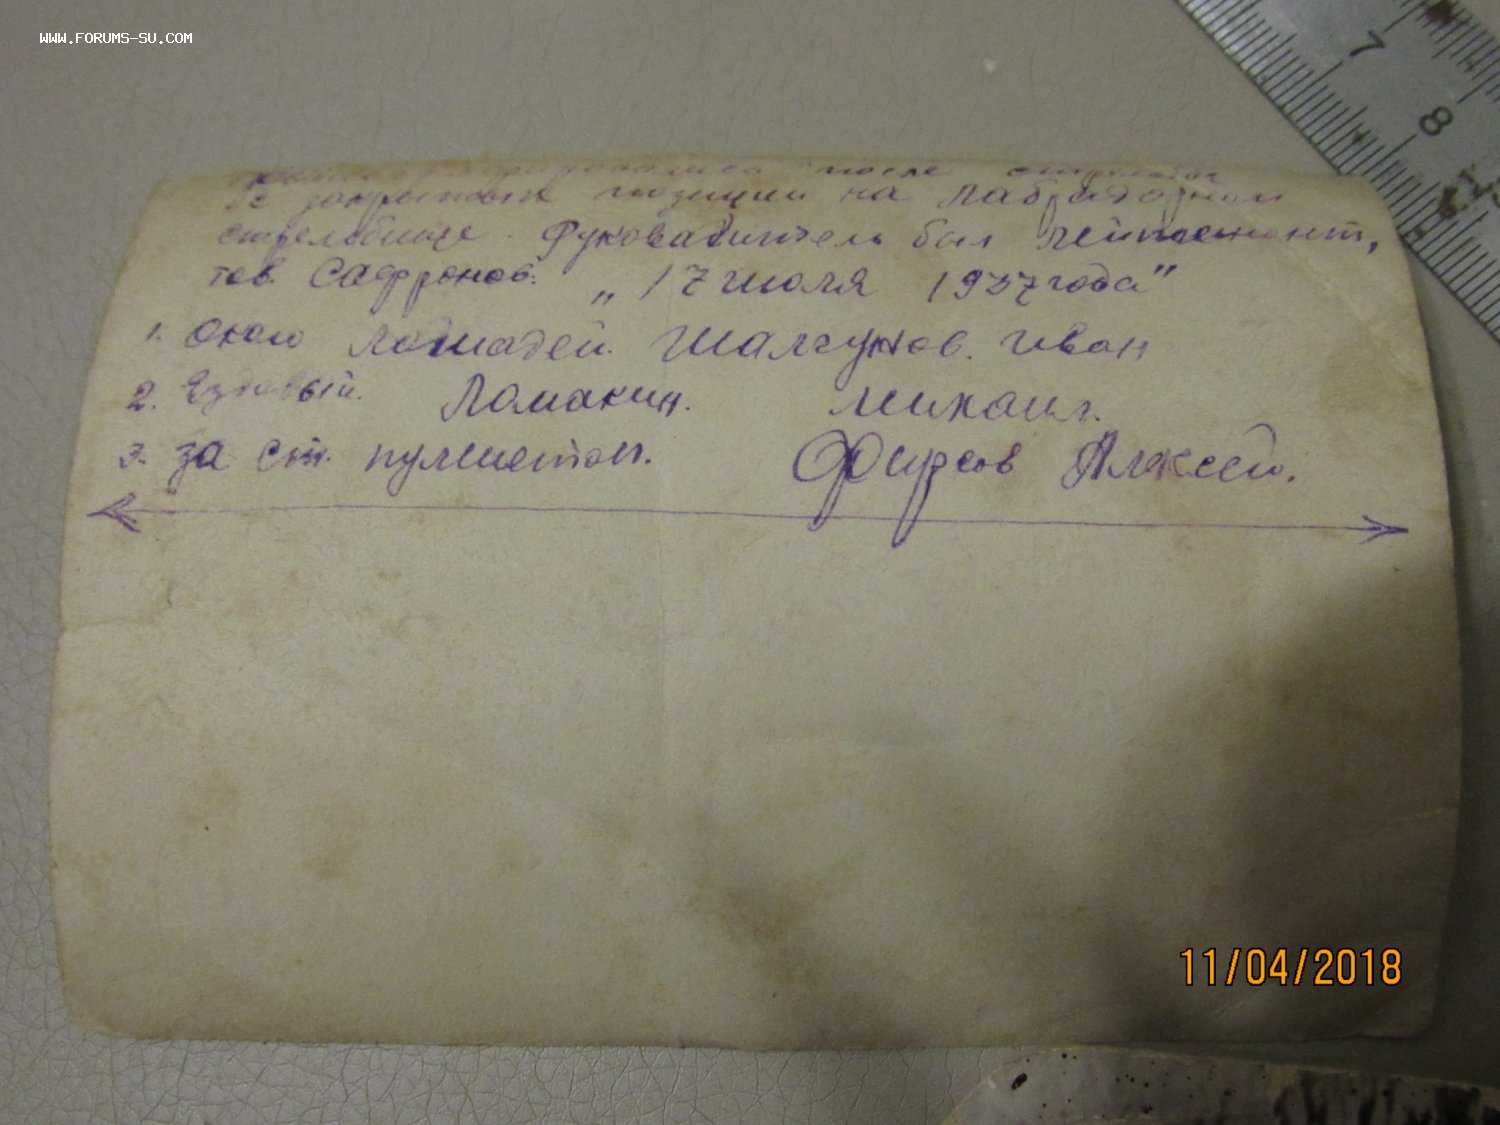 WWW.FORUMS-SU.COM
7
8
после
позиции на лабрадорном
стрельбище. Руковадитель был лейтенант,
тов. Сафронов. „17 июля 1937 года"
1. Около лошадей. Шалгунов. Иван
2. Ездовый. Ломакин. Михаил.
3. за ст. пулеметом. Фирсов Алексей.
11/04/2018